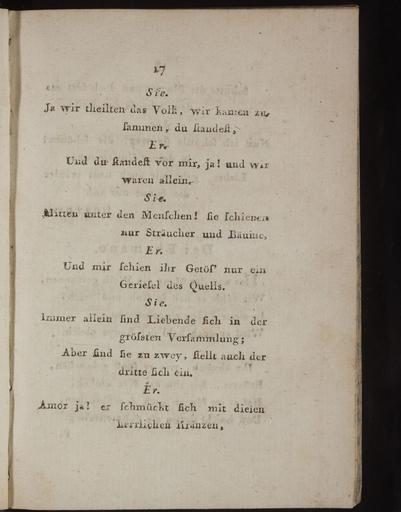 17
Sie.
Ja wir theilten das Volk, wir kamen zu-
ſammen, du ſtandeſt,
Er.
Und du ſtandeſt vor mir, ja! und wir
waren allein.
Sie.
Mitten unter den Menſchen! ſie ſchienen
nur Sträucher und Bäume,
Er.
Und mir ſchien ihr Getöſ' nur ein
Gerieſel des Quells.
Sie.
Immer allein ſind Liebende ſich in der
gröſsten Verſammlung;
Aber ſind ſie zu zwey, ſtellt auch der
dritte ſich ein.
Er.
Amor ja! er ſchmückt ſich mit dieſen
herrlichen Kränzen,